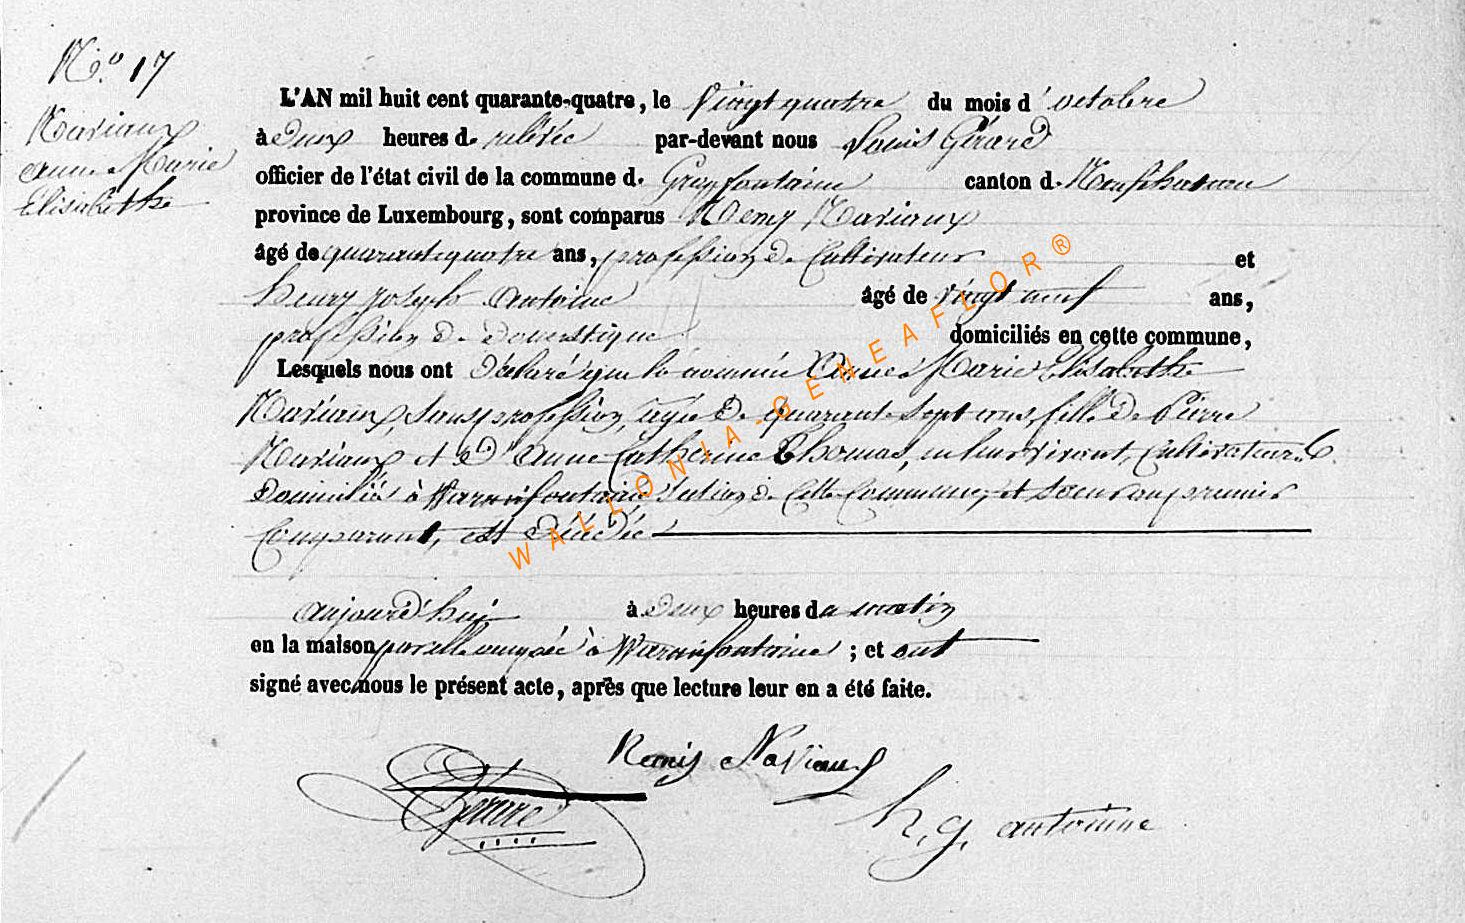 N.° 17
Naviaux
Anne Marie
Elisabethe
L'AN mil huit cent quarante-quatre, le Vingt quatre du mois d'octobre
à Deux heures de relevée par-devant nous Louis Gérard
officier de l'état civil de la commune de Grapfontaine canton de Neufchateau
province de Luxembourg, sont comparus Remy Naviaux
âgé de quarante quatre ans, profession de Cultivateur et
henry joseph Antoine âgé de vingt neuf ans,
profession de Domestique domiciliés en cette commune,
Lesquels nous ont Déclaré que la nommée Anne Marie Elisabethe
Naviaux, sans profession, agée de quarante sept ans, fille de Pierre
Naviaux et d'Anne Catherine Thomas, en leur vivant, Cultivateurs
Domiciliés à Warmifontaine section de Cette Commune, et soeur au premier
Comparant, est Décédée
aujourd'hui à Deux heures du matin
en la maison par elle occupée à Warmifontaine ; et ont
signé avec nous le présent acte, après que lecture leur en a été faite.
Remis Naviaux
Gerard
h. j. antoinne
WALLONIA-GENEAFLOR®